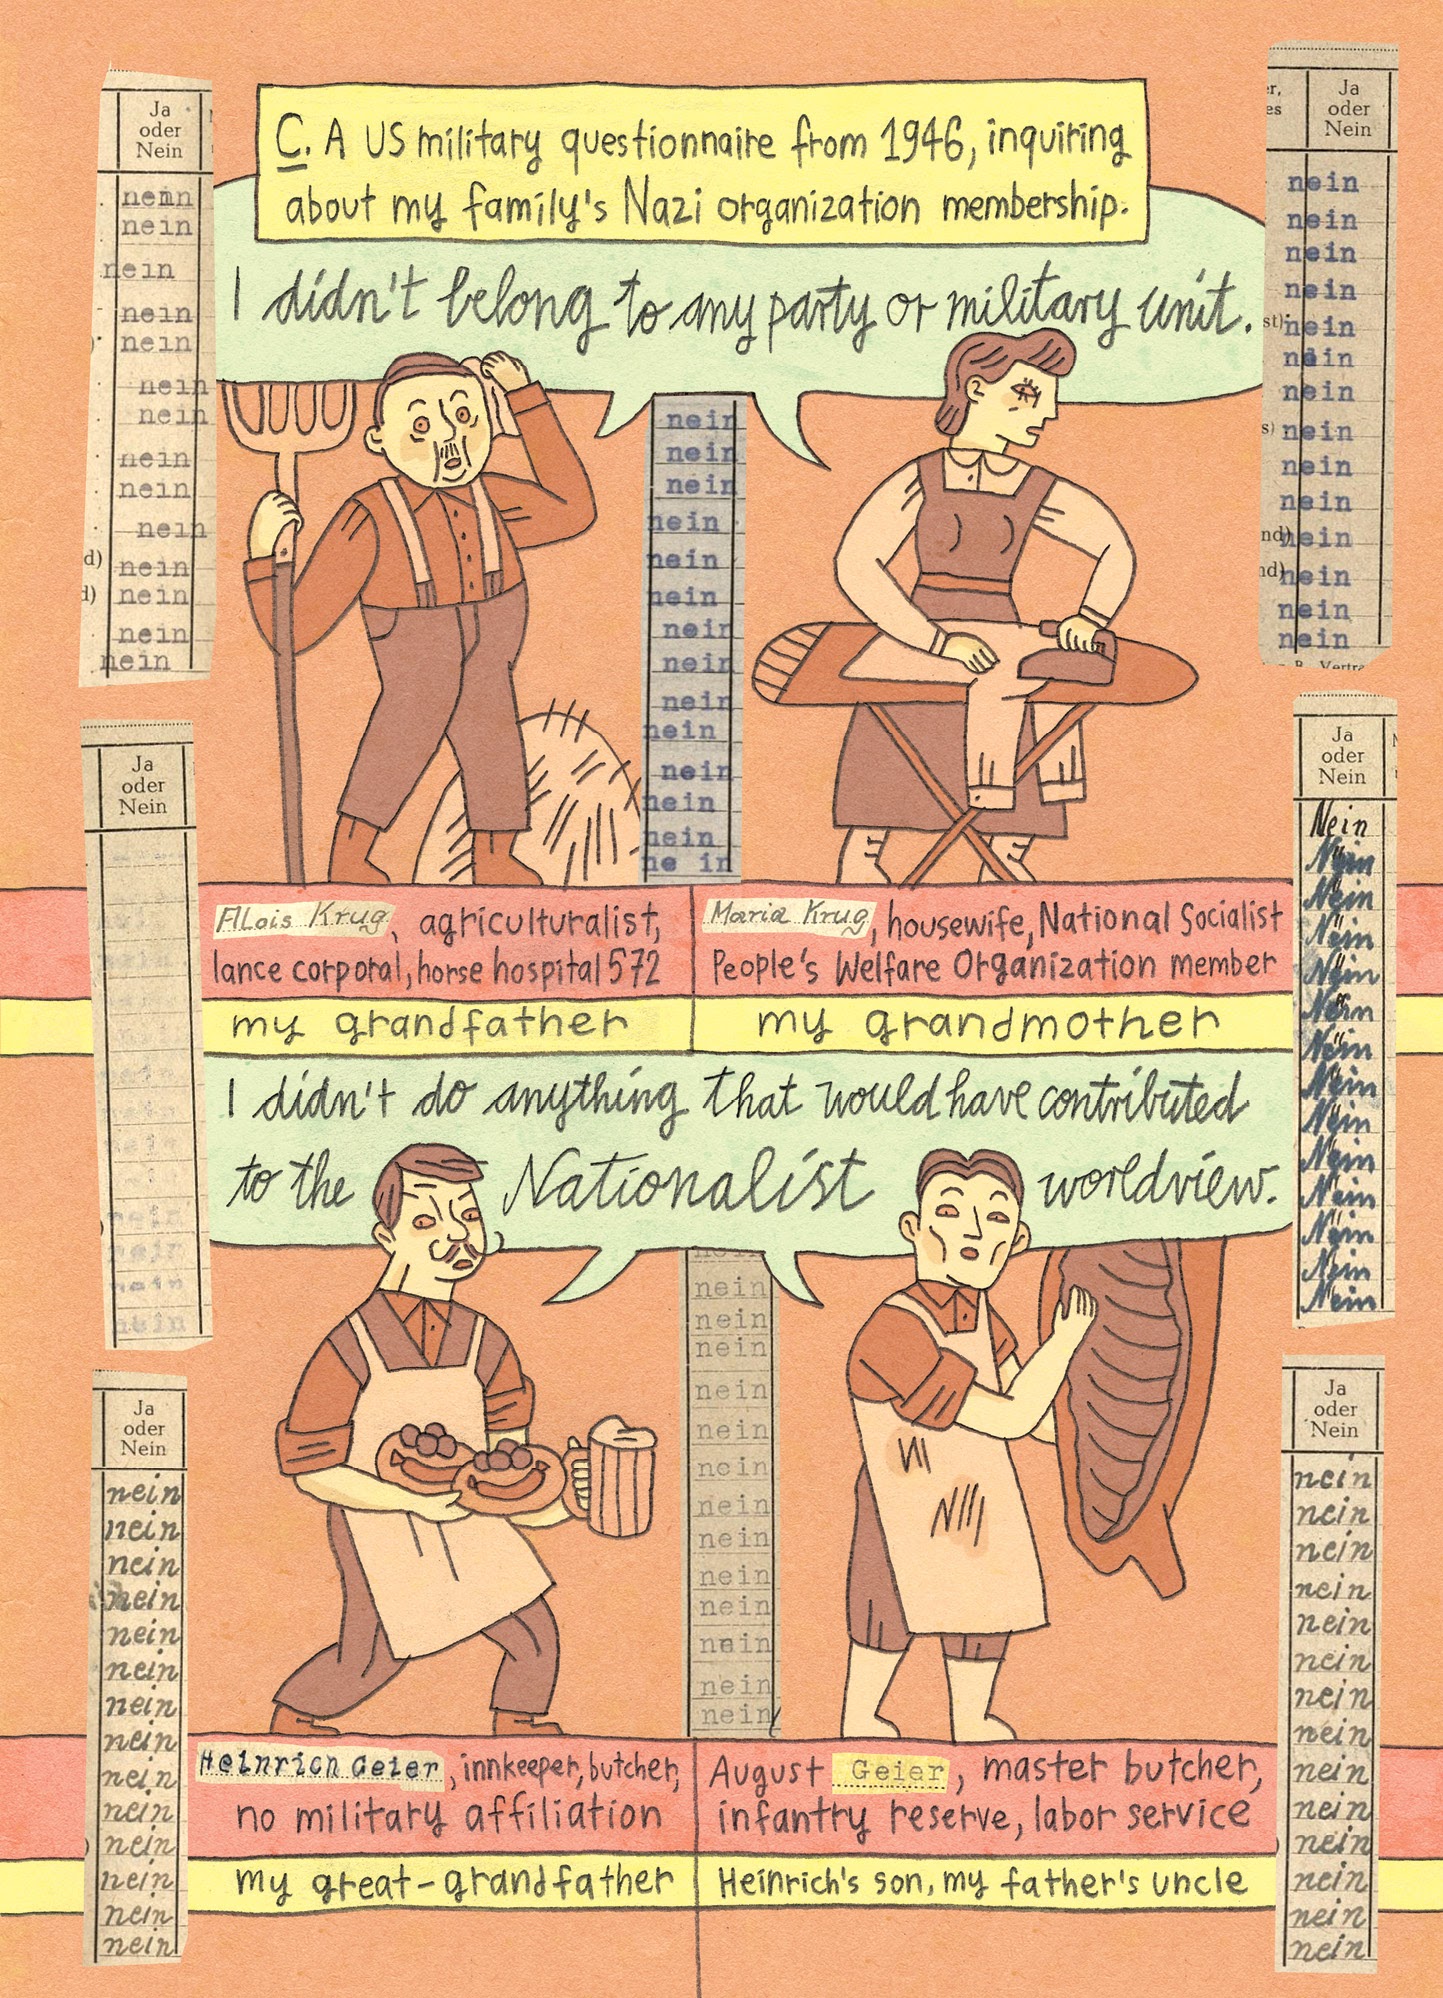 C. A US military questionnaire from 1946, inquiring
about my family's Nazi organization membership.
Ja
oder
Nein
nein
nein
nein
nein
nein
nein
nein
nein
nein
nein
nein
nein
nein
nein
I didn't belong to any party or military unit.
nein
nein
nein
nein
nein
nein
nein
nein
nein
nein
nein
nein
nein
ne in
Ja
oder
Nein
nein
nein
nein
nein
nein
nein
nein
nein
nein
nein
nein
nein
nein
nein
Alois Krug, agriculturalist,
lance corporal, horse hospital 572
my grandfather
Maria Krug, housewife, National Socialist
People's Welfare Organization member
my grandmother
Ja
oder
Nein
nein
nein
nein
nein
I didn't do anything that would have contributed
to the Nationalist worldview.
Ja
oder
Nein
Nein
Nein
Nein
Nein
Nein
Nein
Nein
Nein
Nein
Nein
Nein
Nein
Nein
Nein
Ja
oder
Nein
nein
nein
nein
nein
nein
nein
nein
nein
nein
nein
nein
nein
nein
nein
nein
nein
nein
nein
nein
nein
nein
nein
nein
nein
nein
nein
nein
Ja
oder
Nein
nein
nein
nein
nein
nein
nein
nein
nein
nein
nein
nein
nein
nein
nein
Heinrich Geier, innkeeper, butcher,
no military affiliation
my great-grandfather
August Geier, master butcher,
infantry reserve, labor service
Heinrich's son, my father's uncle